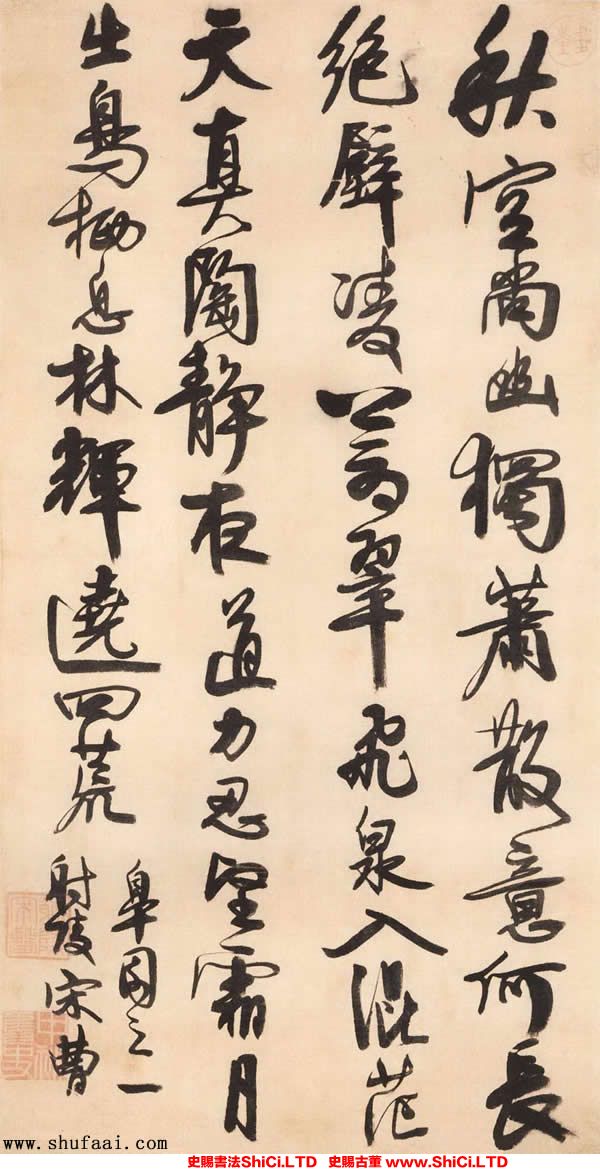 秋空尚幽獨蕭散意何長
絕壁凌蒼翠飛泉入混茫
天真陶靜夜道力忍堅霜月
出鳥栖息林輝遶四荒
皋園之一
射陵宋曹
www.shufaai.com
史賜書法ShiCi.LTD 史賜古董 www.ShiCi.LTD